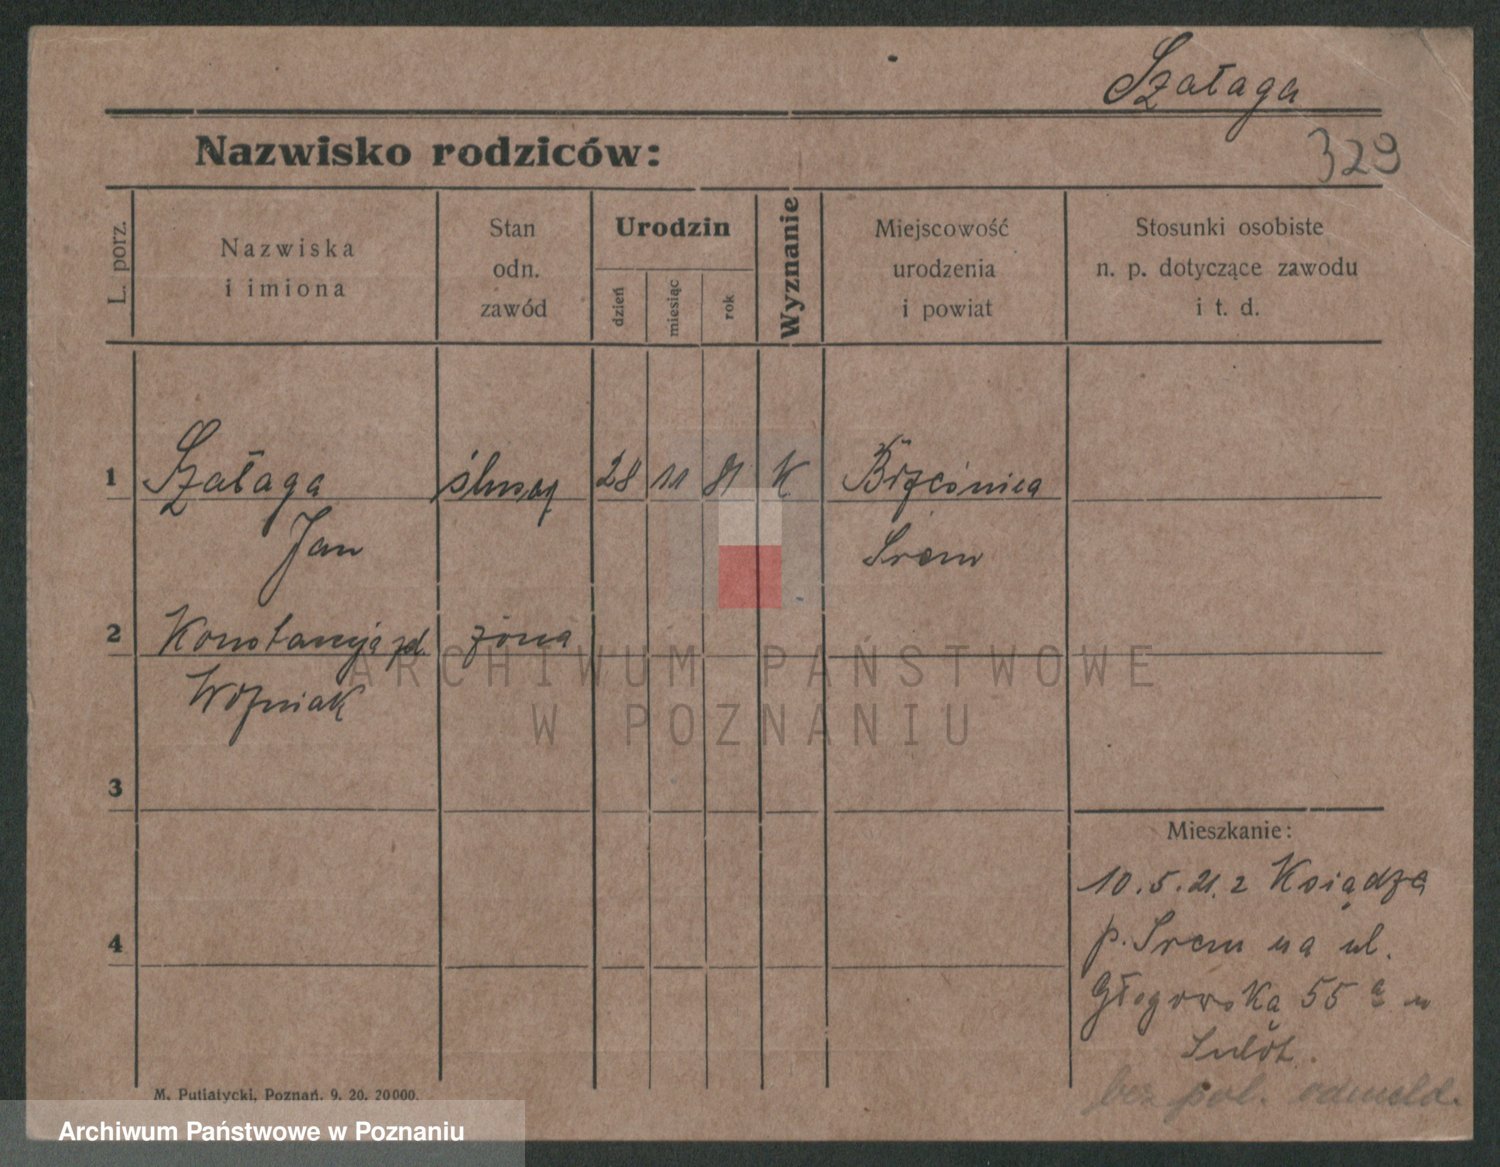 Szałaga
329
Nazwisko rodziców:
L. porz.
Nazwiska
i imiona
Stan
odn.
zawód
Urodzin
dzień
miesiąc
rok
Wyznanie
Miejscowość
urodzenia
i powiat
Stosunki osobiste
n. p. dotyczące zawodu
i t. d.
1 Szałaga ślusaż 28 11 81 K Brzeónica
Jan Śrem
2 Konstancyja zd. żona
Woźniak
3
4
Mieszkanie:
10.5.21. z Książa
p. Śrem na ul.
Głogowska 55 a u
bez pol. odmeld.
M. Putiatycki, Poznań. 9. 20. 20000.
ARCHIWUM PAŃSTWOWE
W POZNANIU
Archiwum Państwowe w Poznaniu